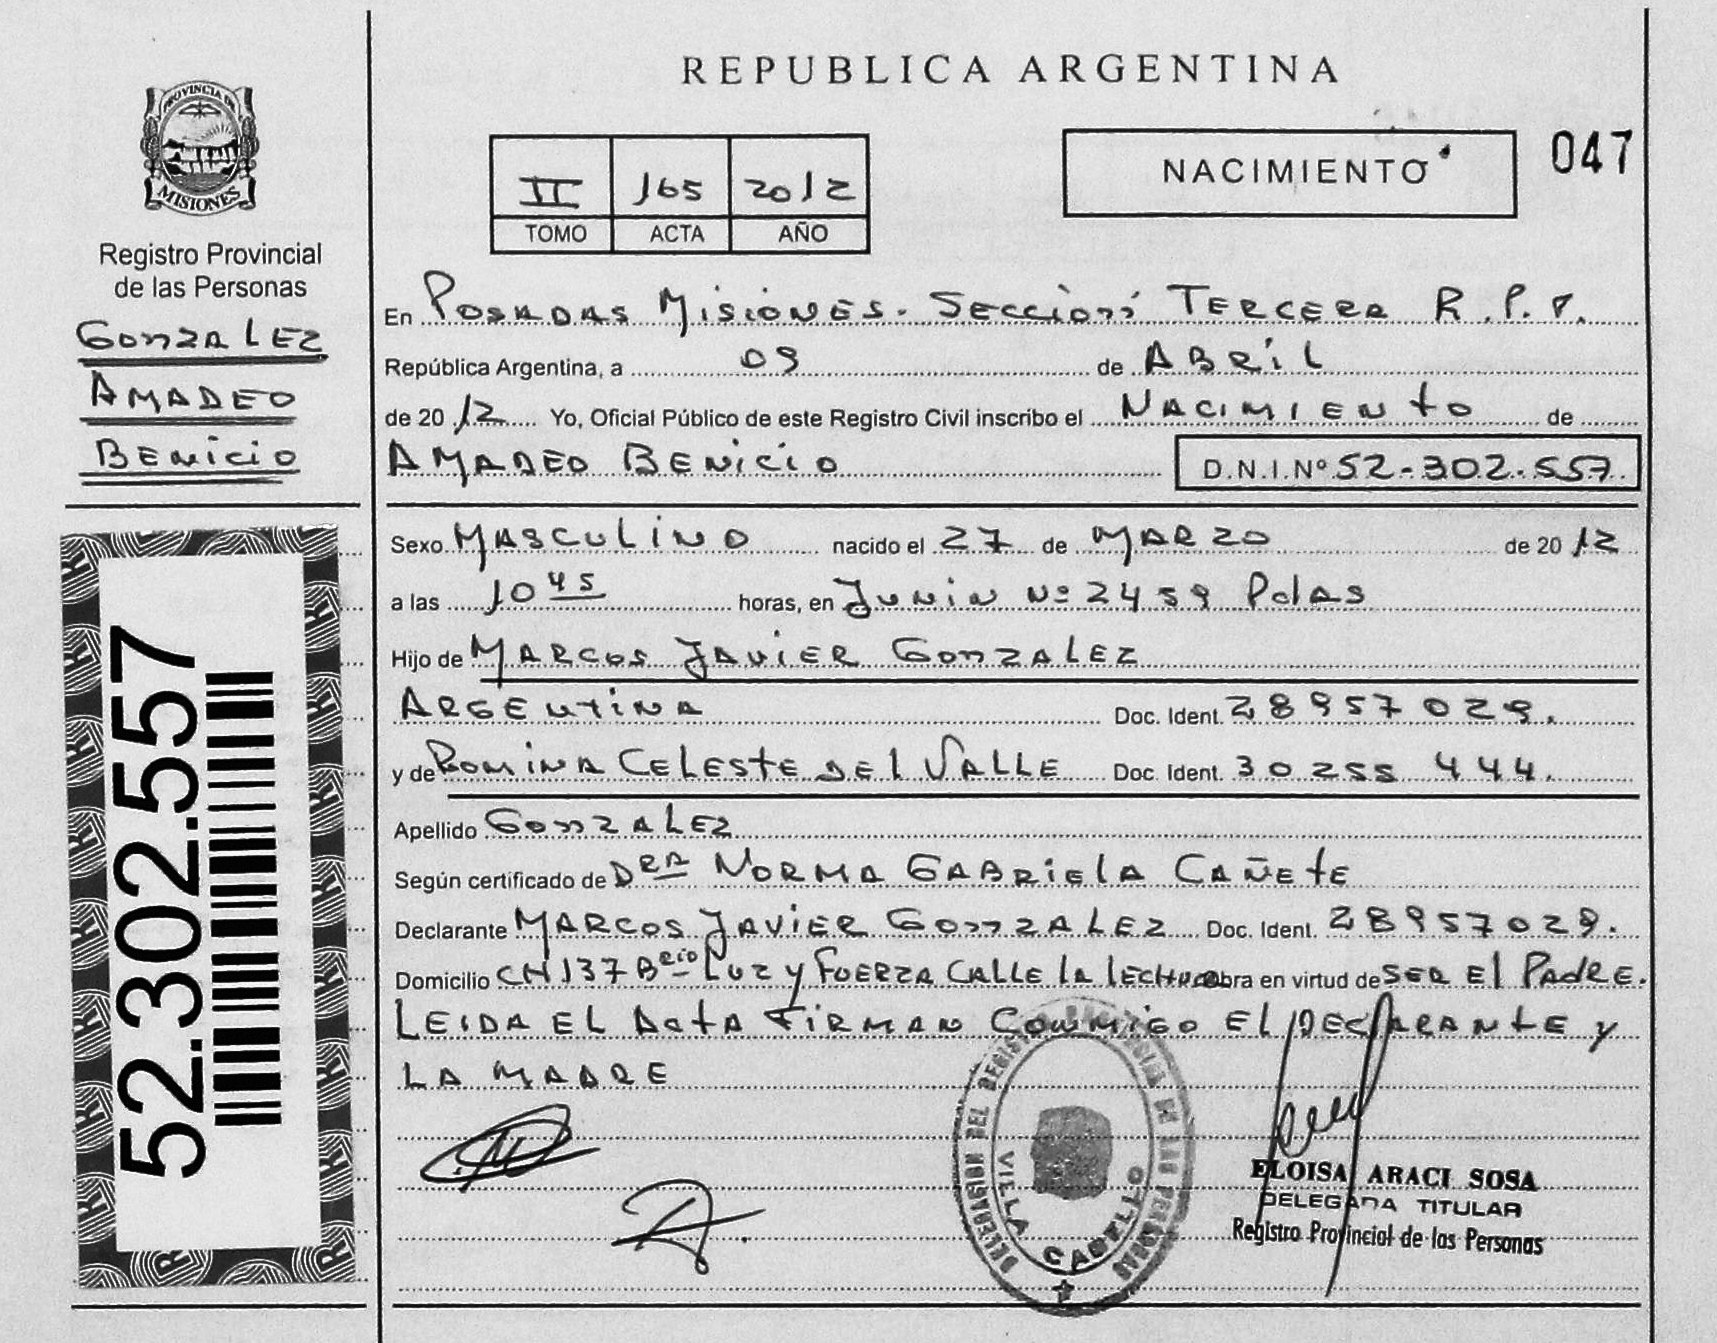 REPUBLICA ARGENTINA
PROVINCIA DE MISIONES
Registro Provincial
de las Personas
GONZALEZ
AMADEO
BENICIO
II 165 2012
TOMO ACTA AÑO
NACIMIENTO
047
En POSADAS MISIONES. SECCION TERCERA R.P.P.
República Argentina, a 09 de ABRIL
de 2012 Yo, Oficial Público de este Registro Civil inscribo el NACIMIENTO de
AMADEO BENICIO D.N.I. Nº 52-302-557
Sexo MASCULINO nacido el 27 de MARZO de 2012
a las 10 45 horas, en JUNIN Nº 2459 PdAS
Hijo de MARCOS JAVIER GONZALEZ
ARGENTINA Doc. Ident. 28957029.
y de ROMINA CELESTE DEL VALLE Doc. Ident. 30255444.
Apellido GONZALEZ
Según certificado de DRA NORMA GABRIELA CAÑETE
Declarante MARCOS JAVIER GONZALEZ Doc. Ident. 28957029.
Domicilio CH 137 Brio LUZ y FUERZA CALLE LA LECHUZA obra en virtud de SER EL PADRE.
LEIDA EL ACTA FIRMAN CONMIGO EL DECLARANTE y
LA MADRE
52.302.557
DELEGACION DEL REGISTRO PROVINCIAL DE LAS PERSONAS
VILLA CABELLO
ELOISA ARACI SOSA
DELEGADA TITULAR
Registro Provincial de las Personas